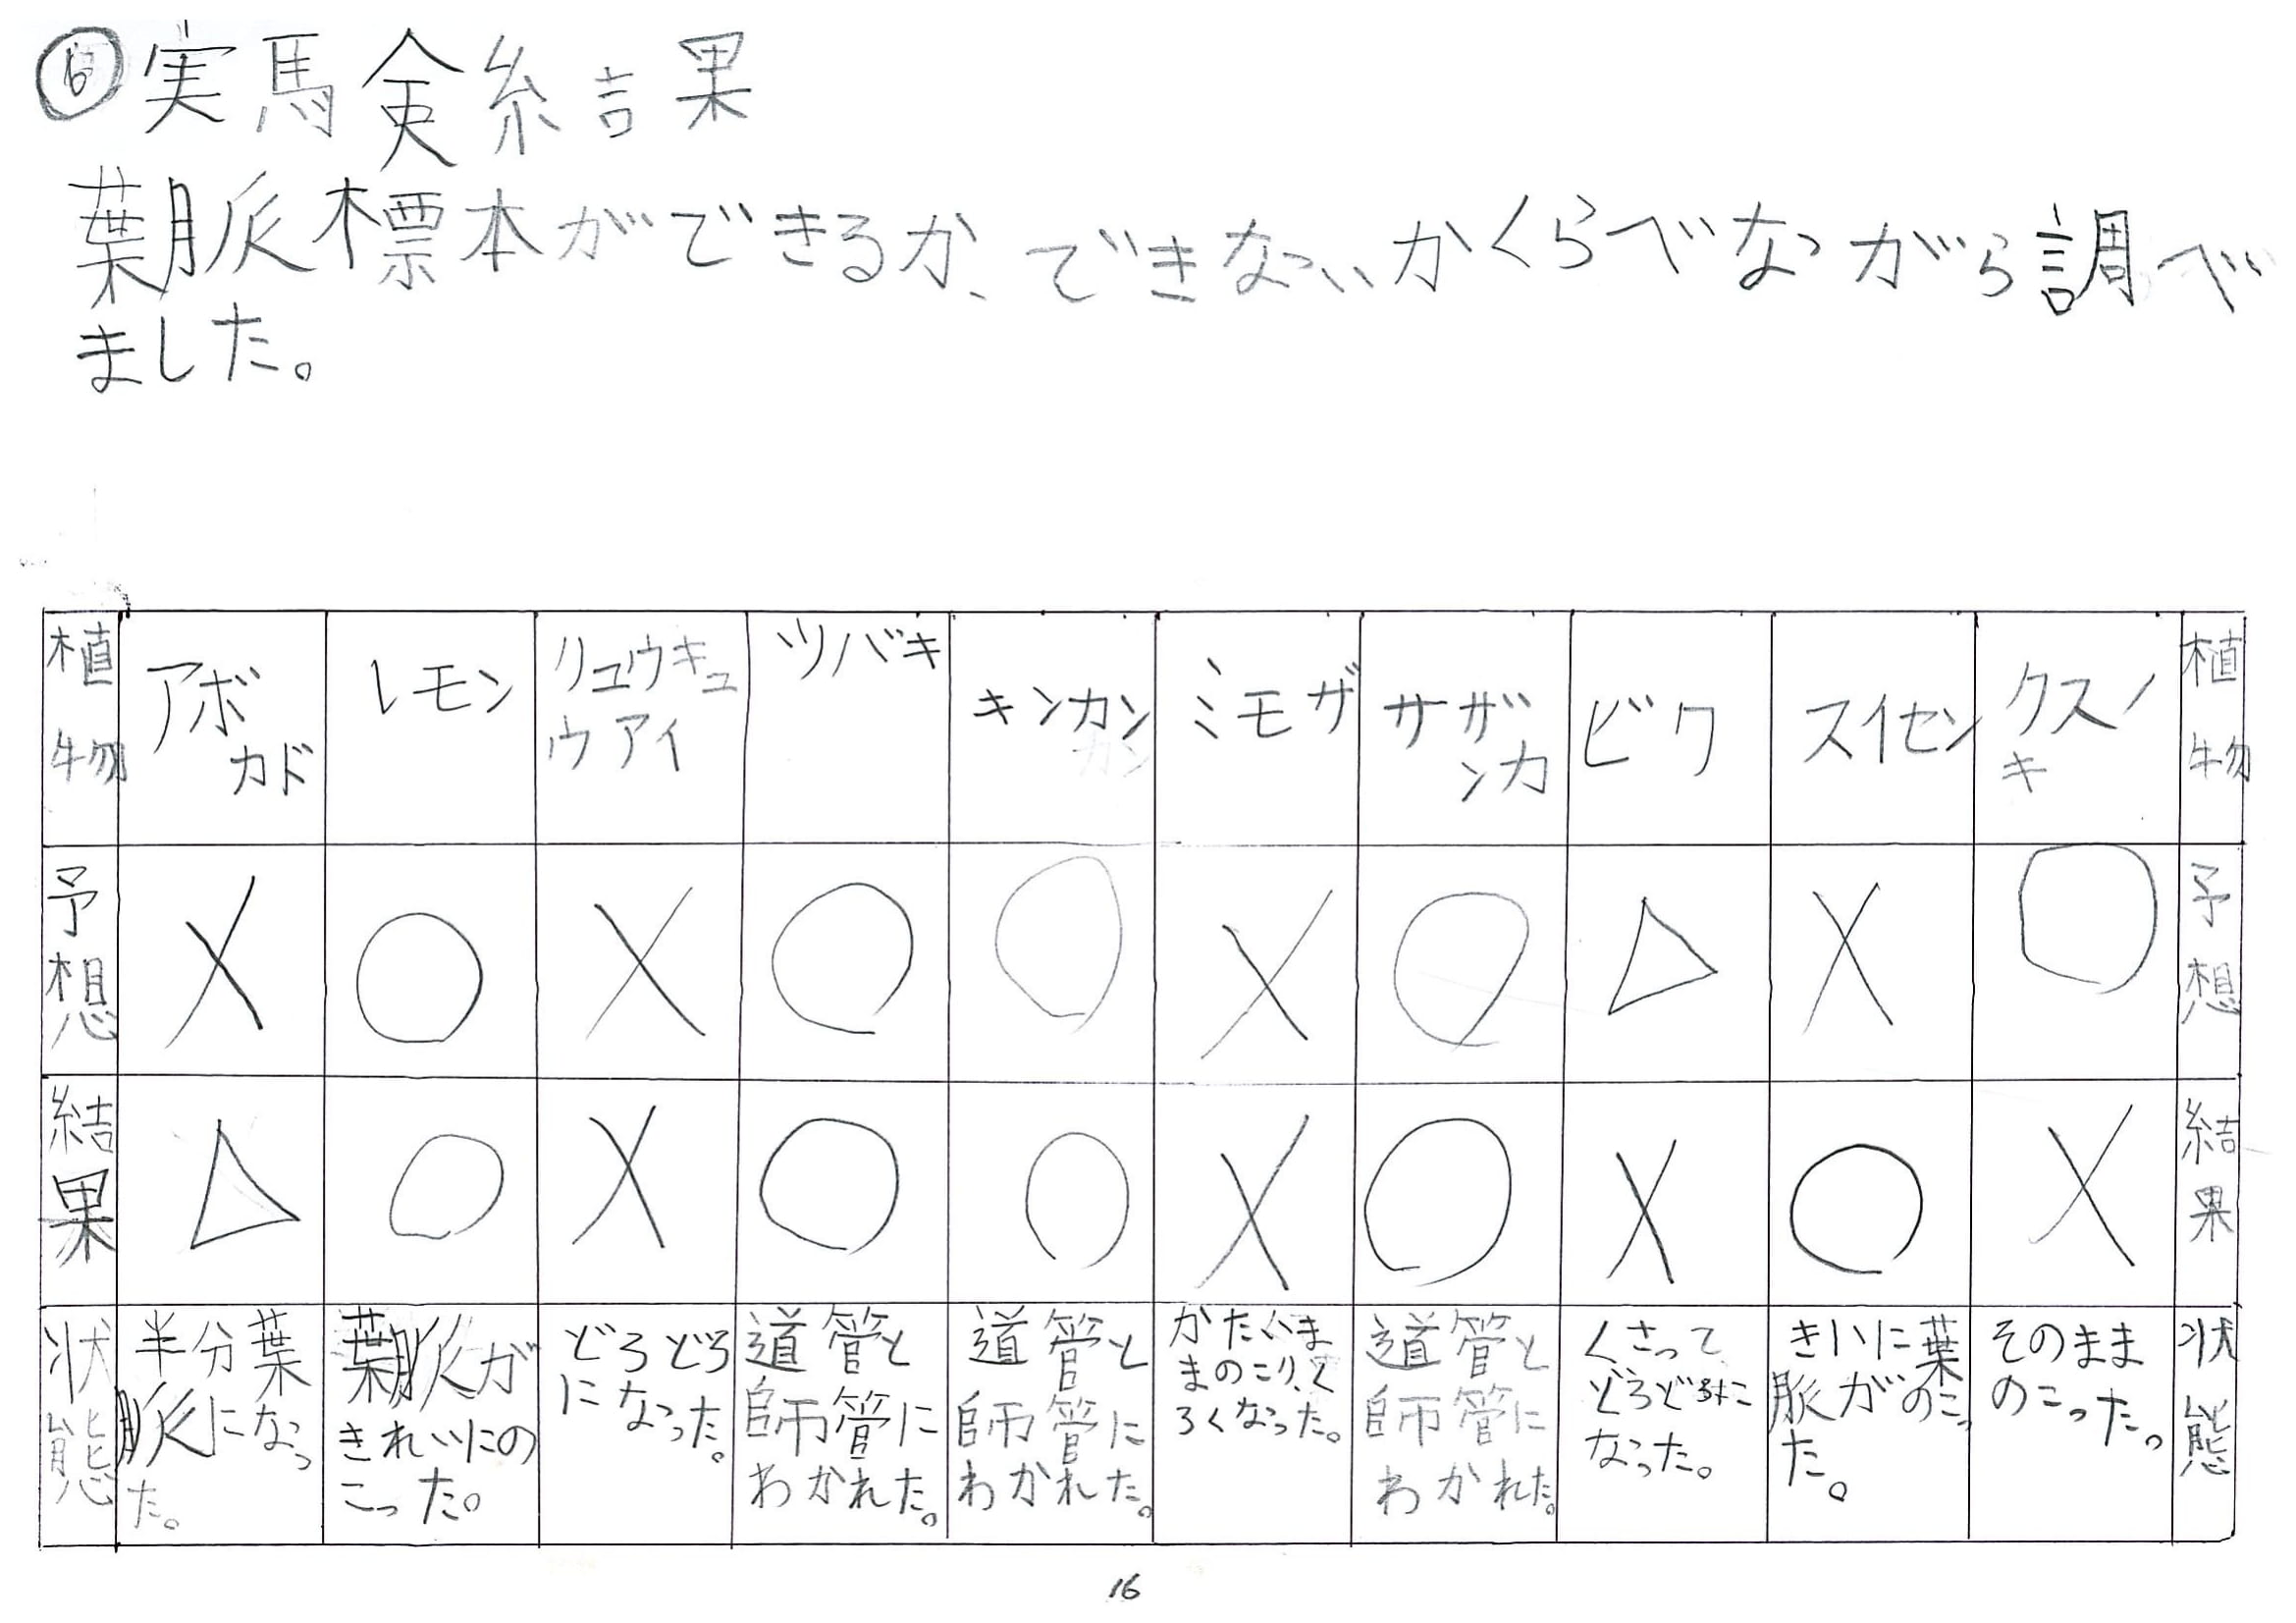 ⑥実験結果
葉脈標本ができるか、できないかくらべながら調べ
ました。
植物 アボカド レモン リュウキュウアイ ツバキ キンカン ミモザ サザンカ ビワ スイセン クスノキ 植物
予想 X ○ X ○ ○ X ○ △ X ○ 予想
結果 △ ○ X ○ ○ X ○ X ○ X 結果
状態 半分葉脈になった。 葉脈がきれいにのこった。 どろどろになった。 道管と師管にわかれた。 道管と師管にわかれた。 道管と師管にわかれた。 くさってどろどろになった。 きいに葉脈がのこった。 そのままのこった。 状態
16